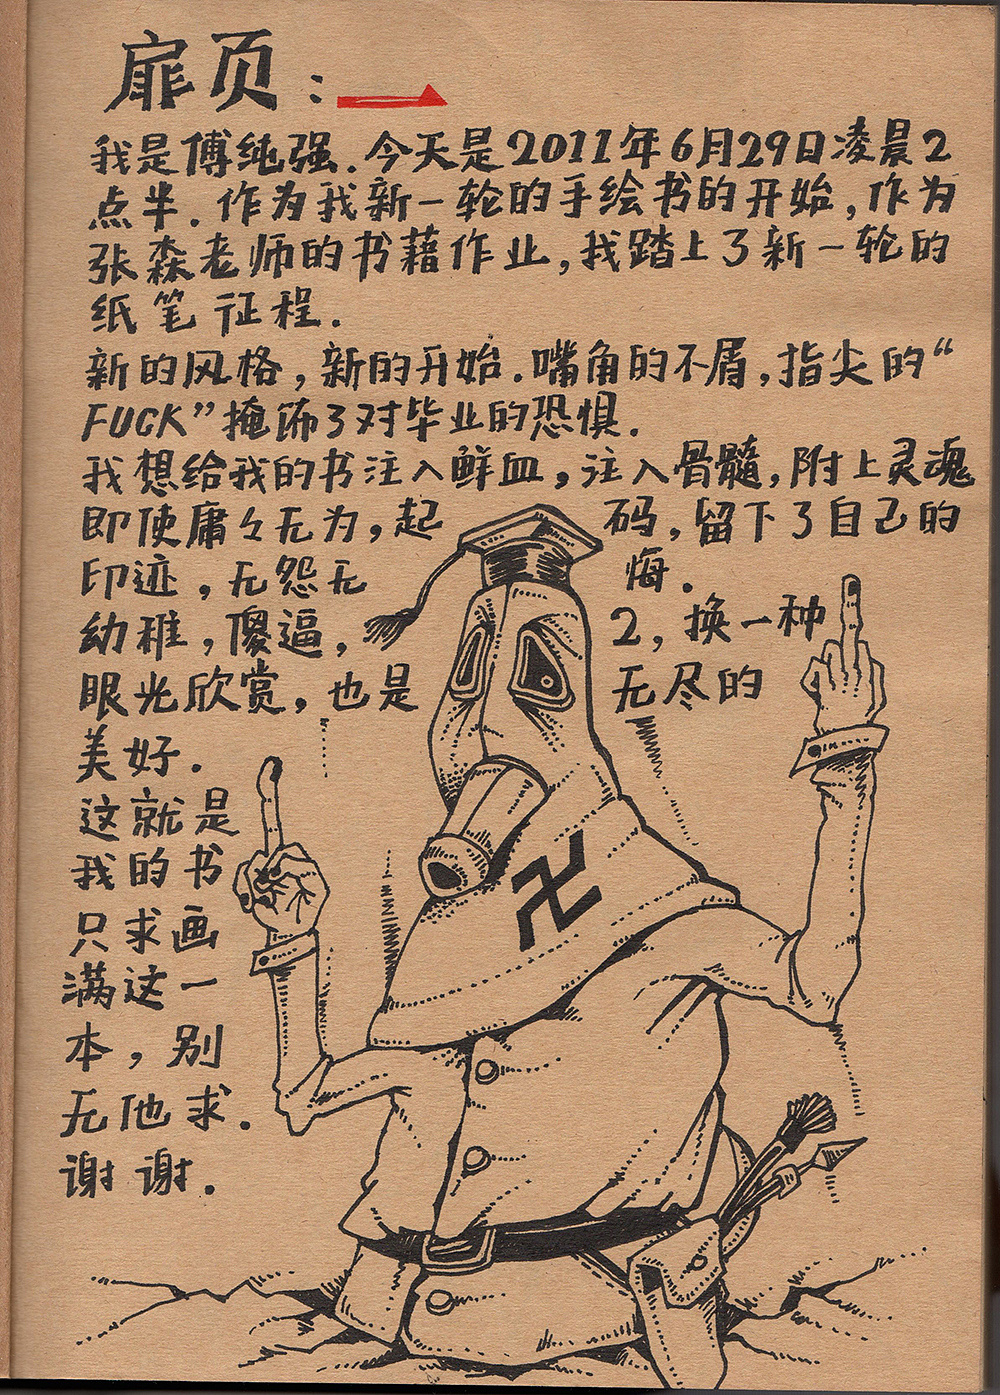 扉页:
我是傅纯强.今天是2011年6月29日凌晨2
点半.作为我新一轮的手绘书的开始,作为
张森老师的书藉作业,我踏上了新一轮的
纸笔征程.
新的风格,新的开始.嘴角的不屑,指尖的“
FUCK”掩饰了对毕业的恐惧.
我想给我的书注入鲜血,注入骨髓,附上灵魂
即使庸々无为,起码,留下了自己的
印迹,无怨无悔.
幼稚,傻逼,2,换一种
眼光欣赏,也是无尽的
美好.
这就是
我的书
只求画
满这一
本,别
无他求.
谢谢.